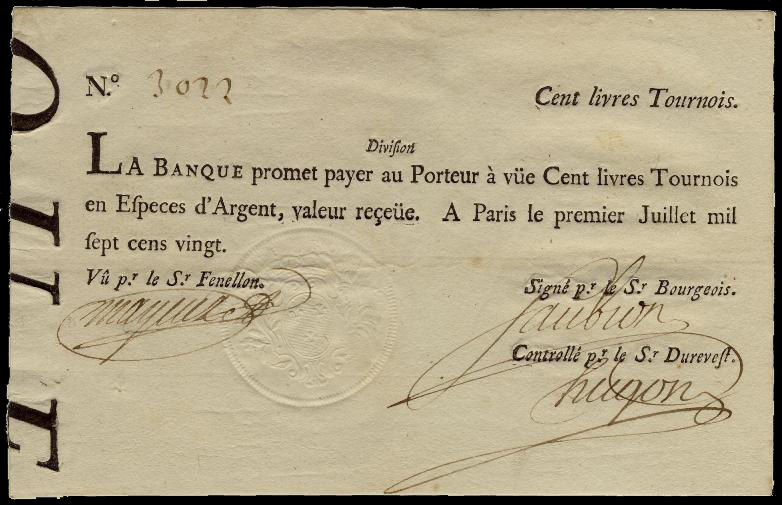 N.º 3022
Cent livres Tournois.
Division
LA BANQUE promet payer au Porteur à vüe Cent livres Tournois
en Eſpeces d'Argent, valeur reçeüe. A Paris le premier Juillet mil
ſept cens vingt.
Vû p.r le S.r Fenellon.
Signé p.r le S.r Bourgeois.
Saubion
Controllé p.r le S.r Dureveſt.
hugon